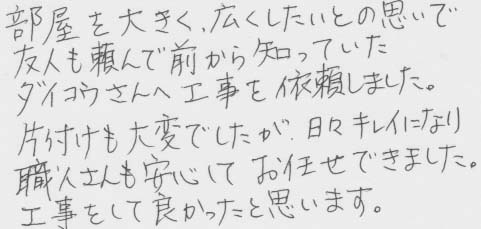 部屋を大きく、広くしたいとの思いで
友人も頼んで前から知っていた
ダイコウさんへ工事を依頼しました。
片付けも大変でしたが、日々キレイになり
職人さんも安心してお任せできました。
工事をして良かったと思います。